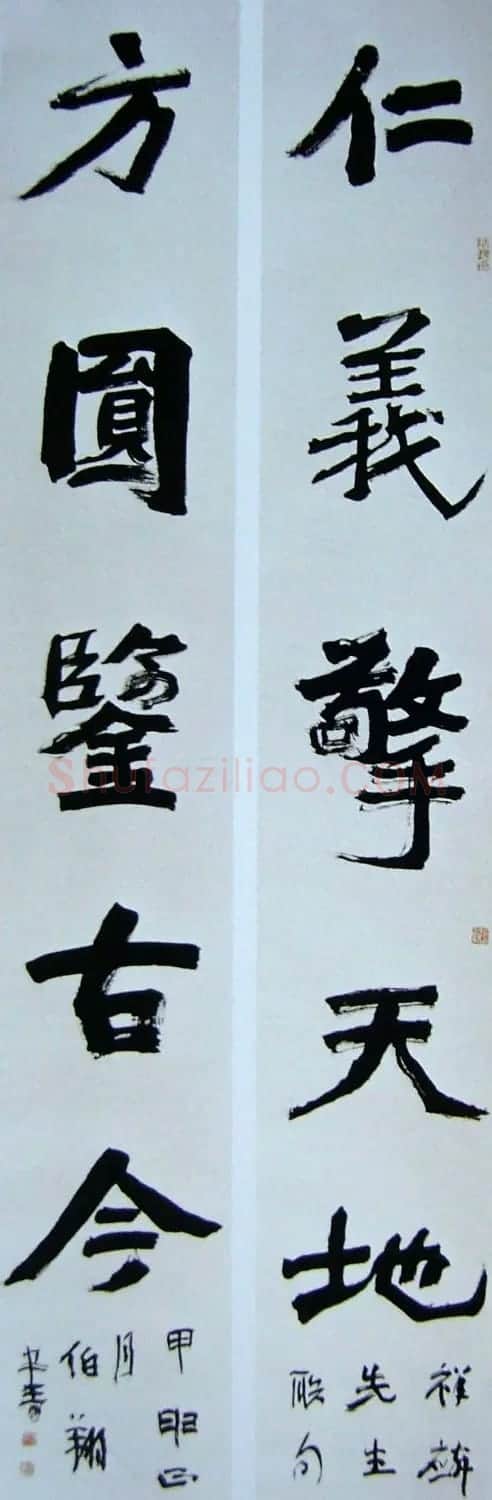 仁義擎天地
祥
先生
聯句
方圓鑒古今
甲申正
月
伯翔
書
Shufaziliao.COM